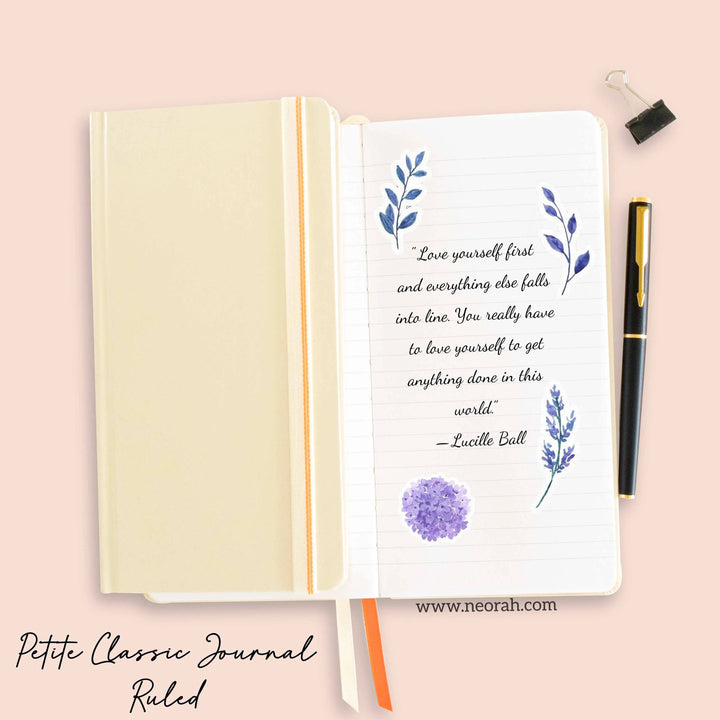 "Love yourself first
and everything else falls
into line. You really have
to love yourself to get
anything done in this
world."
—Lucille Ball
www.neorah.com
Petite Classic Journal
Ruled